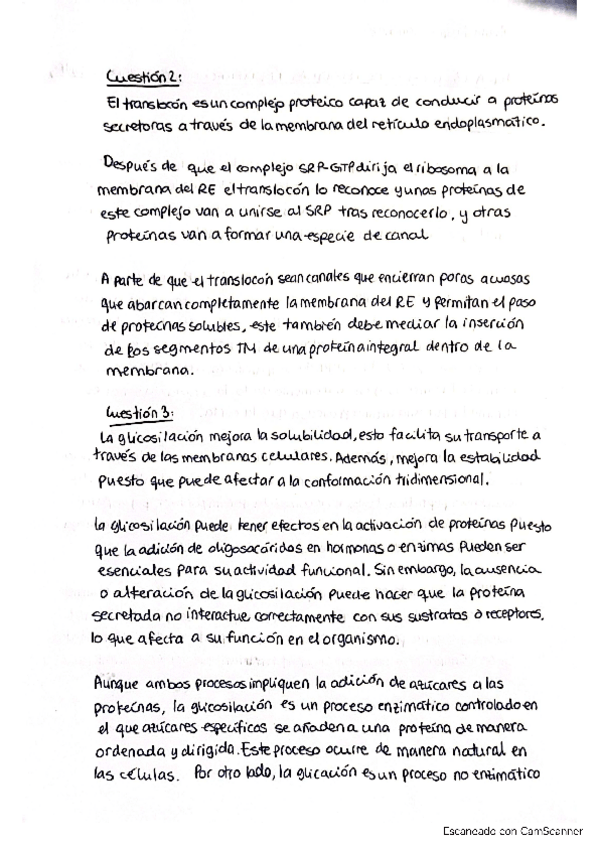 Cuestión 2:
El translocón es un complejo proteico capaz de conducir a proteínas
secretoras a través de la membrana del retículo endoplasmático.
Después de que el complejo SRP-GTP dirija el ribosoma a la
membrana del RE el translocón lo reconoce y unas proteínas de
este complejo van a unirse al SRP tras reconocerlo, y otras
proteínas van a formar una especie de canal
A parte de que el translocón sean canales que encierran poros acuosos
que abarcan completamente la membrana del RE y permitan el paso
de proteínas solubles, este también debe mediar la inserción
de los segmentos TM de una proteína integral dentro de la
membrana.
Cuestión 3:
La glicosilación mejora la solubilidad, esto facilita su transporte a
través de las membranas celulares. Además, mejora la estabilidad
puesto que puede afectar a la conformación tridimensional.
La glicosilación puede tener efectos en la activación de proteínas puesto
que la adición de oligosacáridos en hormonas o enzimas pueden ser
esenciales para su actividad funcional. Sin embargo, la ausencia
o alteración de la glucosilación puede hacer que la proteína
secretada no interactúe correctamente con sus sustratos o receptores,
lo que afecta a su función en el organismo.
Aunque ambos procesos impliquen la adición de azúcares a las
proteínas, la glicosilación es un proceso enzimático controlado en
el que azúcares específicos se añaden a una proteína de manera
ordenada y dirigida. Este proceso ocurre de manera natural en
las células. Por otro lado, la glicación es un proceso no enzimático
Escaneado con CamScanner